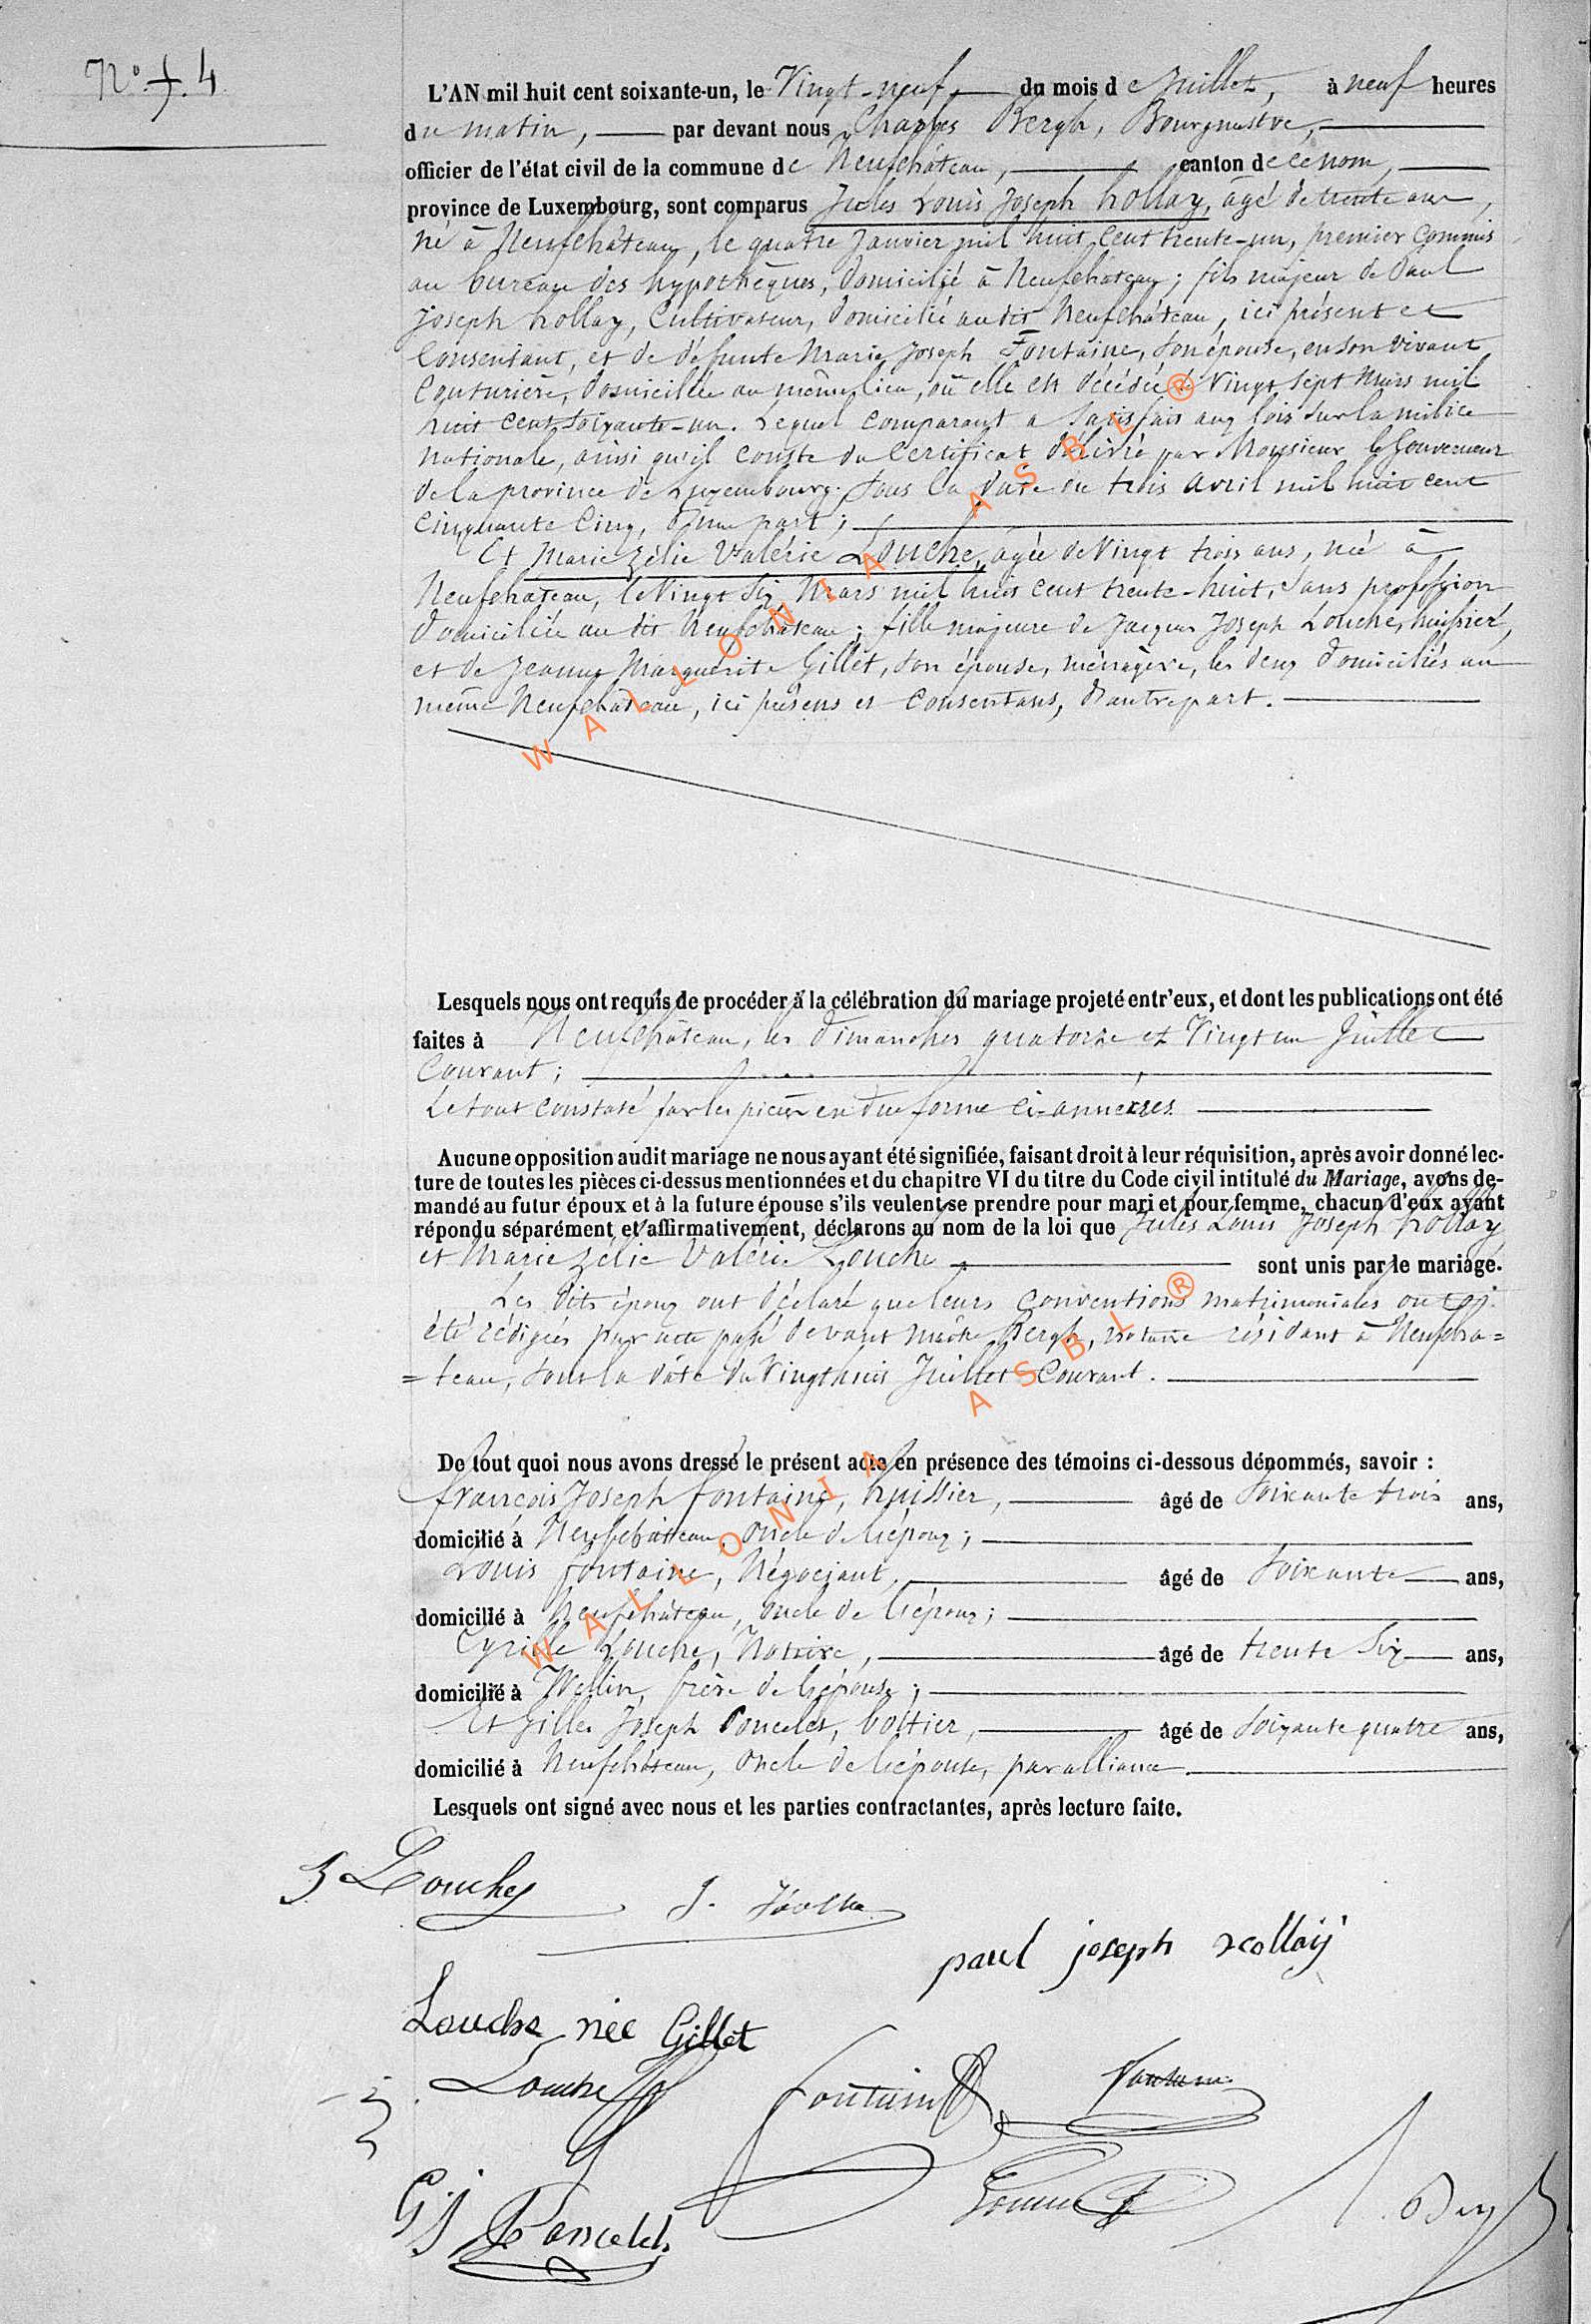 N° 4
L'AN mil huit cent soixante-un, le Vingt-neuf du mois de Juillet, à neuf heures
du matin, par devant nous Charles Bergh, Bourgmestre,
officier de l'état civil de la commune de Neufchâteau, canton de ce nom,
province de Luxembourg, sont comparus Jules Louis Joseph hollay, âgé de trente ans,
né à Neufchâteau, le quatre Janvier mil huit cent trente-un, premier Commis
au bureau des hypothèques, domicilié à Neufchâteau; fils majeur de Paul
Joseph hollay, Cultivateur, domicilié au dit Neufchâteau, ici présent et
Consentant, et de défunte Marie Joseph Fontaine, son épouse, en son vivant
Couturière, domiciliée au même lieu, où elle est décédée le Vingt sept Mars mil
huit cent soixante-un. Lequel comparant a satisfait aux lois sur la milice
nationale, ainsi qu'il conste du Certificat délivré par Monsieur le Gouverneur
de la province de Luxembourg, sous la date du trois avril mil huit cent
Cinquante Cinq, d'une part;
Et Marie Zélie Valérie Louche, agée de Vingt trois ans, née à
Neufchâteau, le Vingt six Mars mil huit cent trente-huit, sans profession
domiciliée au dit Neufchâteau; fille majeure de Jacques Joseph Louche, huissier,
et de Jeanne Marguerite Gillet, son épouse, ménagère, les deux domiciliés au
même Neufchâteau, ici présens et Consentans, d'autre part.
Lesquels nous ont requis de procéder à la célébration du mariage projeté entr'eux, et dont les publications ont été
faites à Neufchâteau, les dimanches quatorze et Vingt un Juillet
Courant;
Le tout constaté par les pièces en due forme ci-annexées
Aucune opposition audit mariage ne nous ayant été signifiée, faisant droit à leur réquisition, après avoir donné lec-
ture de toutes les pièces ci-dessus mentionnées et du chapitre VI du titre du Code civil intitulé du Mariage, avons de-
mandé au futur époux et à la future épouse s'ils veulent se prendre pour mari et pour femme, chacun d'eux ayant
répondu séparément et affirmativement, déclarons au nom de la loi que Jules Louis Joseph hollay
et Marie Zélie Valérie Louche sont unis par le mariage.
Les dits époux ont déclaré que leurs conventions matrimoniales ont
été rédigées par acte passé devant maître Bergh, notaire résidant à Neufchâ=
=teau, sous la date du Vingt huit Juillet Courant.
De tout quoi nous avons dressé le présent acte en présence des témoins ci-dessous dénommés, savoir :
françois Joseph fontaine, huissier, âgé de soixante trois ans,
domicilié à Neufchâteau, oncle de l'époux;
Louis fontaine, Négociant, âgé de soixante ans,
domicilié à Neufchâteau, oncle de l'époux;
Cyrille Louche, Notaire, âgé de trente six ans,
domicilié à Wellin, frère de l'épouse;
Et Gilles Joseph Poncelet, boîtier, âgé de soixante quatre ans,
domicilié à Neufchâteau, oncle de l'épouse, par alliance.
Lesquels ont signé avec nous et les parties contractantes, après lecture faite.
Louche
paul joseph hollay
Louche née Gillet
Louche Fontaine Fontaine
G J Poncelet Bergh
WALLONIA ASBL ®
WALLONIA ASBL ®